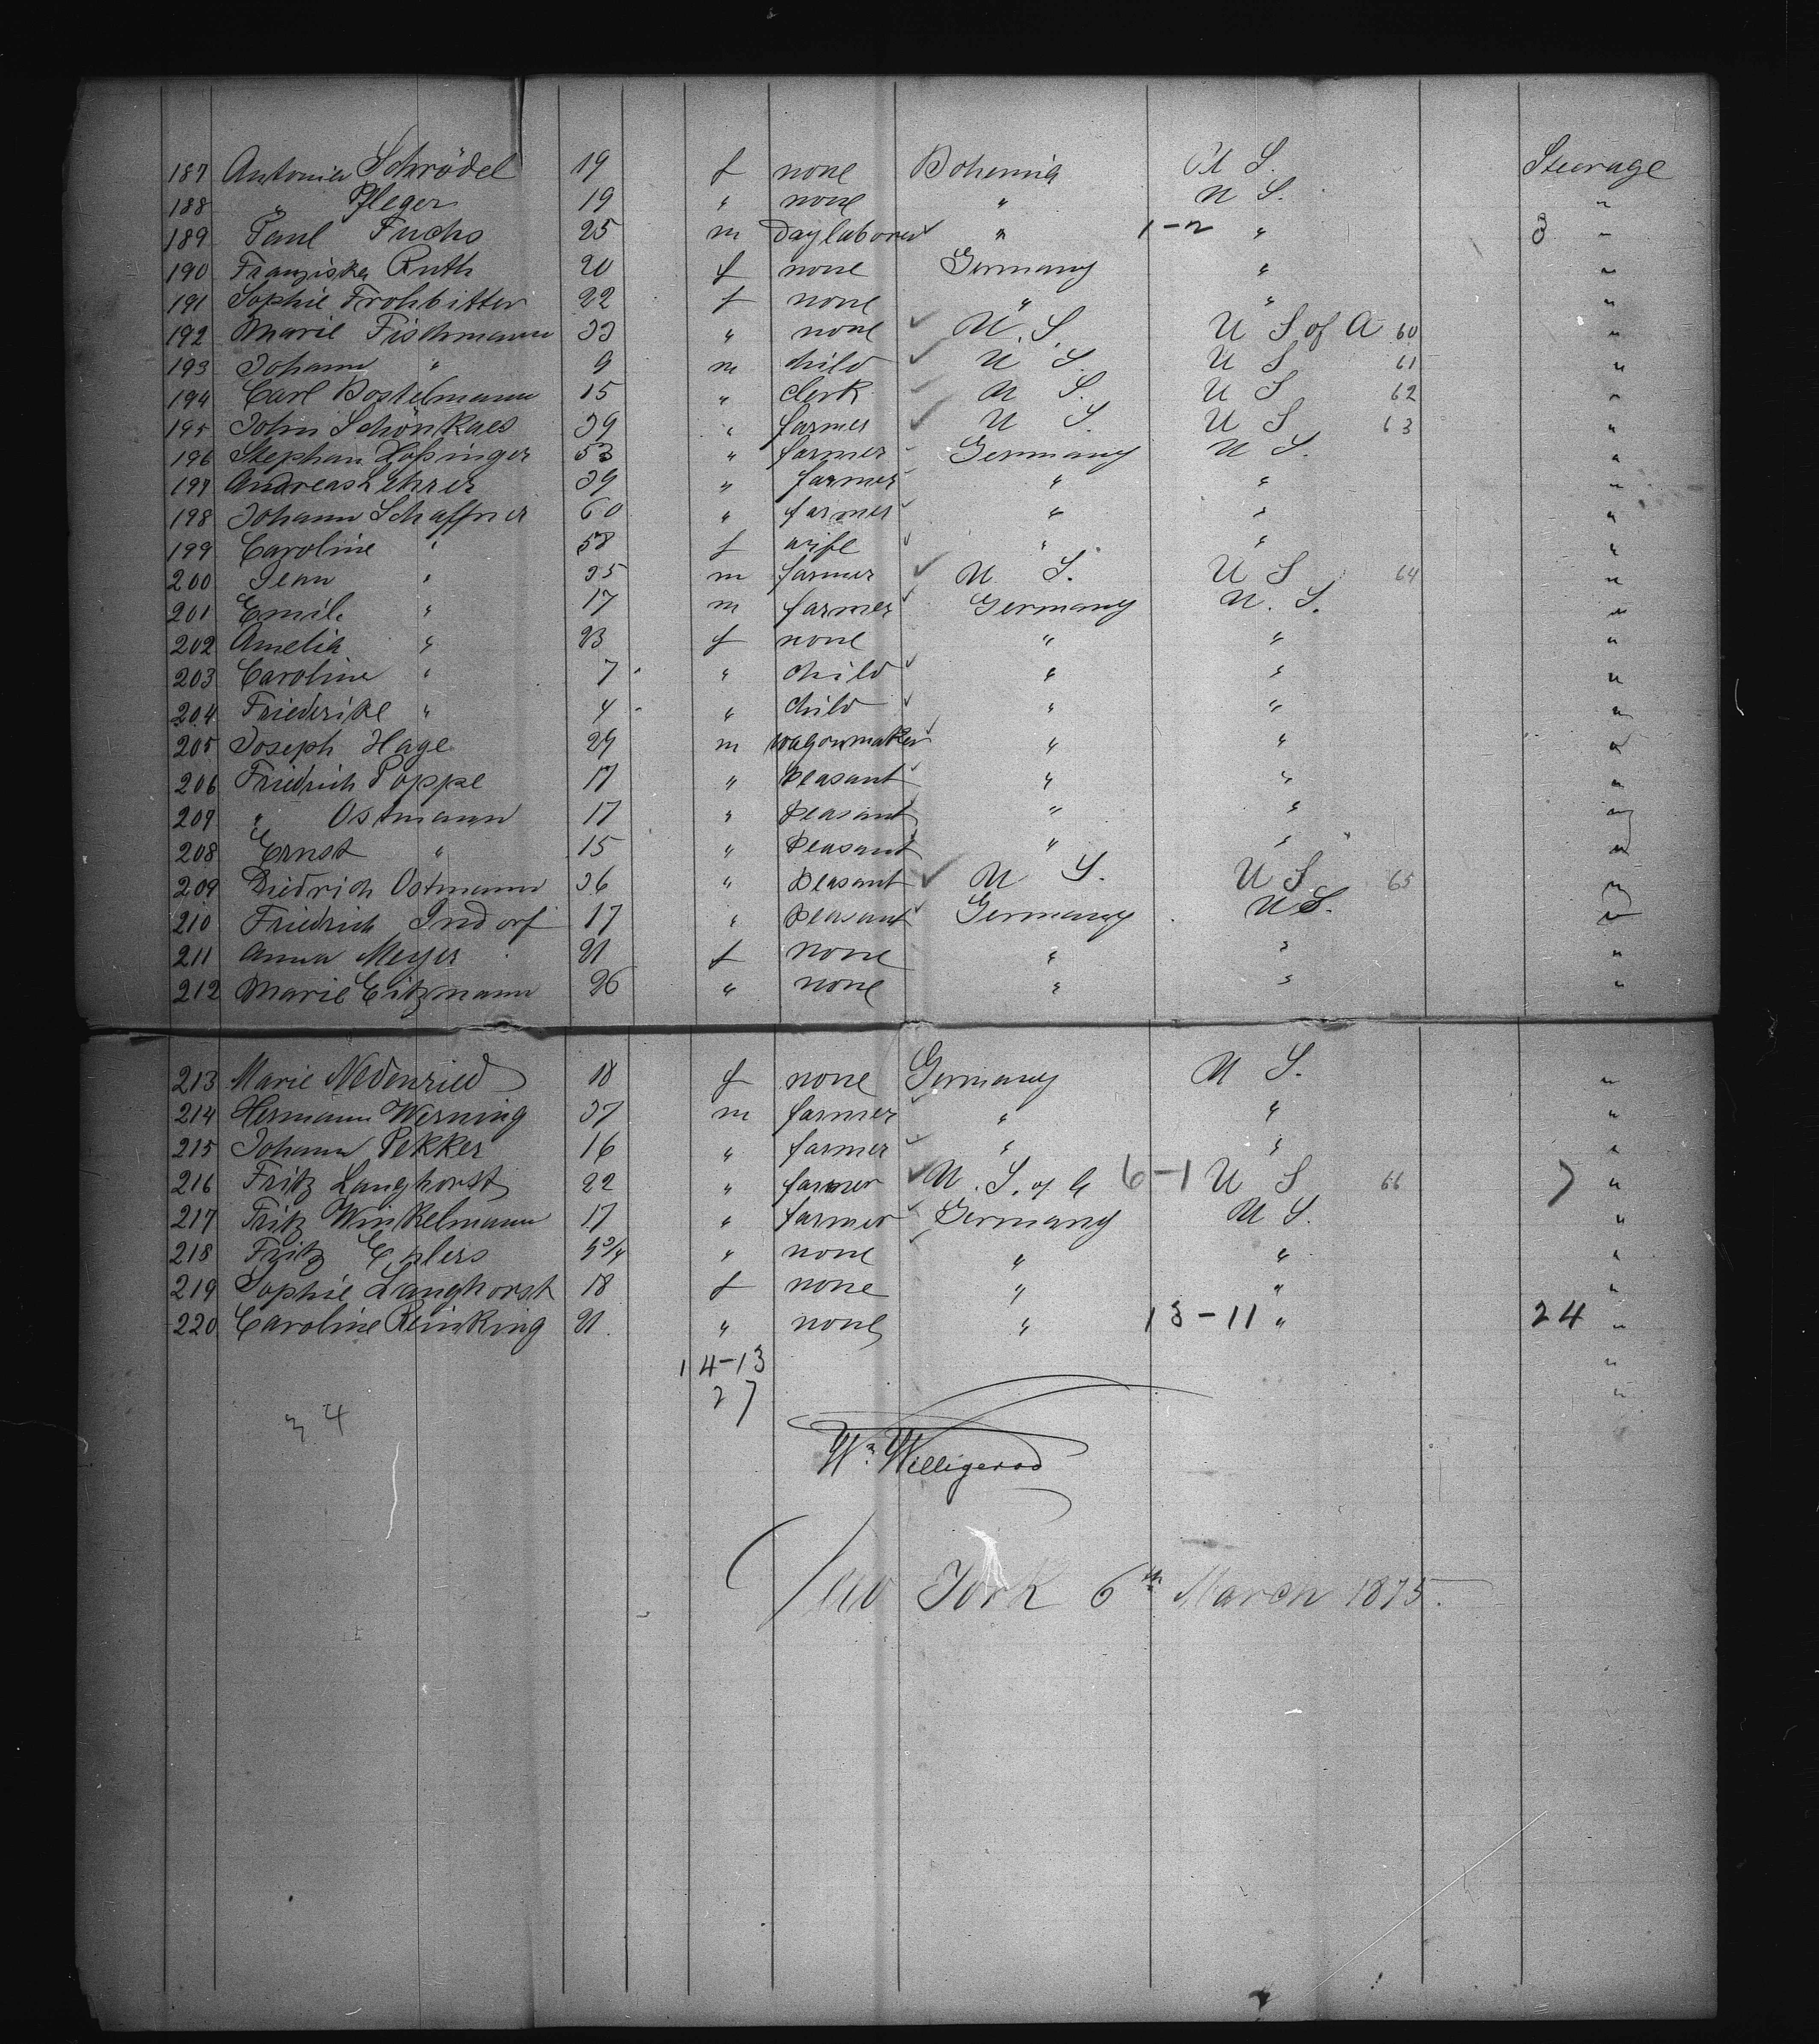 187 Antonia Schrödel 19 f none Bohemia U S. Steerage
188 " Pfleger 19 " none " U S. "
189 Paul Fuchs 25 m Daylaborer " 1-2 " 3 "
190 Franziska Ruth 20 f none Germany " "
191 Sophie Frohbitter 22 f none " " "
192 Marie Fischmann 33 " none U. S. U S of A 60 "
193 Johann " 9 m child U S U S 61 "
194 Carl Bostelmann 15 " Clerk U S. U S 62 "
195 John Schönkaes 39 " farmer U S. U S 63 "
196 Stephan 53 " farmer Germany U S. "
197 Andreas Lehrer 39 " farmer " " "
198 Johann Schaffner 60 " farmer " " "
199 Caroline " 58 f wife " " "
200 Jean " 35 m farmer U S. U S 64 "
201 Emil " 17 m farmer Germany U. S. "
202 Amelia " 23 f none " " "
203 Caroline " 7 " child " " "
204 Friederike " 4 " child " " "
205 Joseph Hage 29 m wagonmaker " " "
206 Friedrich Poppe 17 " peasant " " "
207 " Ostmann 17 " peasant " " "
208 Ernst " 15 " peasant " " "
209 Diedrich Ostmann 36 " peasant U S. U S 65 "
210 Friedrich Indorf 17 " peasant Germany U S. "
211 Anna Meyer 21 f none " " "
212 Marie Eitzmann 26 " none " " "
213 Marie 18 f none Germany U S. "
214 Hermann Werning 37 m farmer " " "
215 Johann Pekker 16 " farmer " " "
216 Fritz Langhorst 22 " farmer U. S. of 6-1 U S 66 7 "
217 Fritz Winkelmann 17 " farmer Germany U S. "
218 Fritz Ehlers " none " " "
219 Sophie Langhorst 18 f none " " "
220 Caroline Reinking 21. " none " 13-11 " 24 "
14-13 "
27 "
34
Wm Willigerod
New York 6th March 1875.